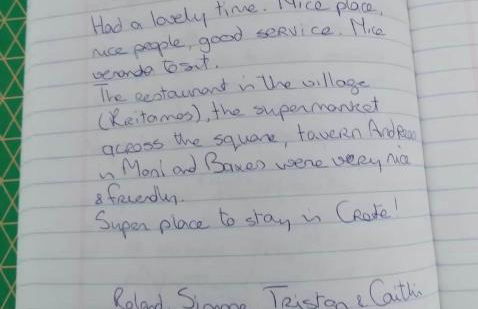 Had a lovely time. Nice place,
nice people, good service. Nice
veranda to sit.
The restaurant in the village
the supermarket
across the square, tavern Andreas
in Moni and were very nice
& friendly.
Super place to stay in Crete!
Roland, Simone, Tristan & Caitlin